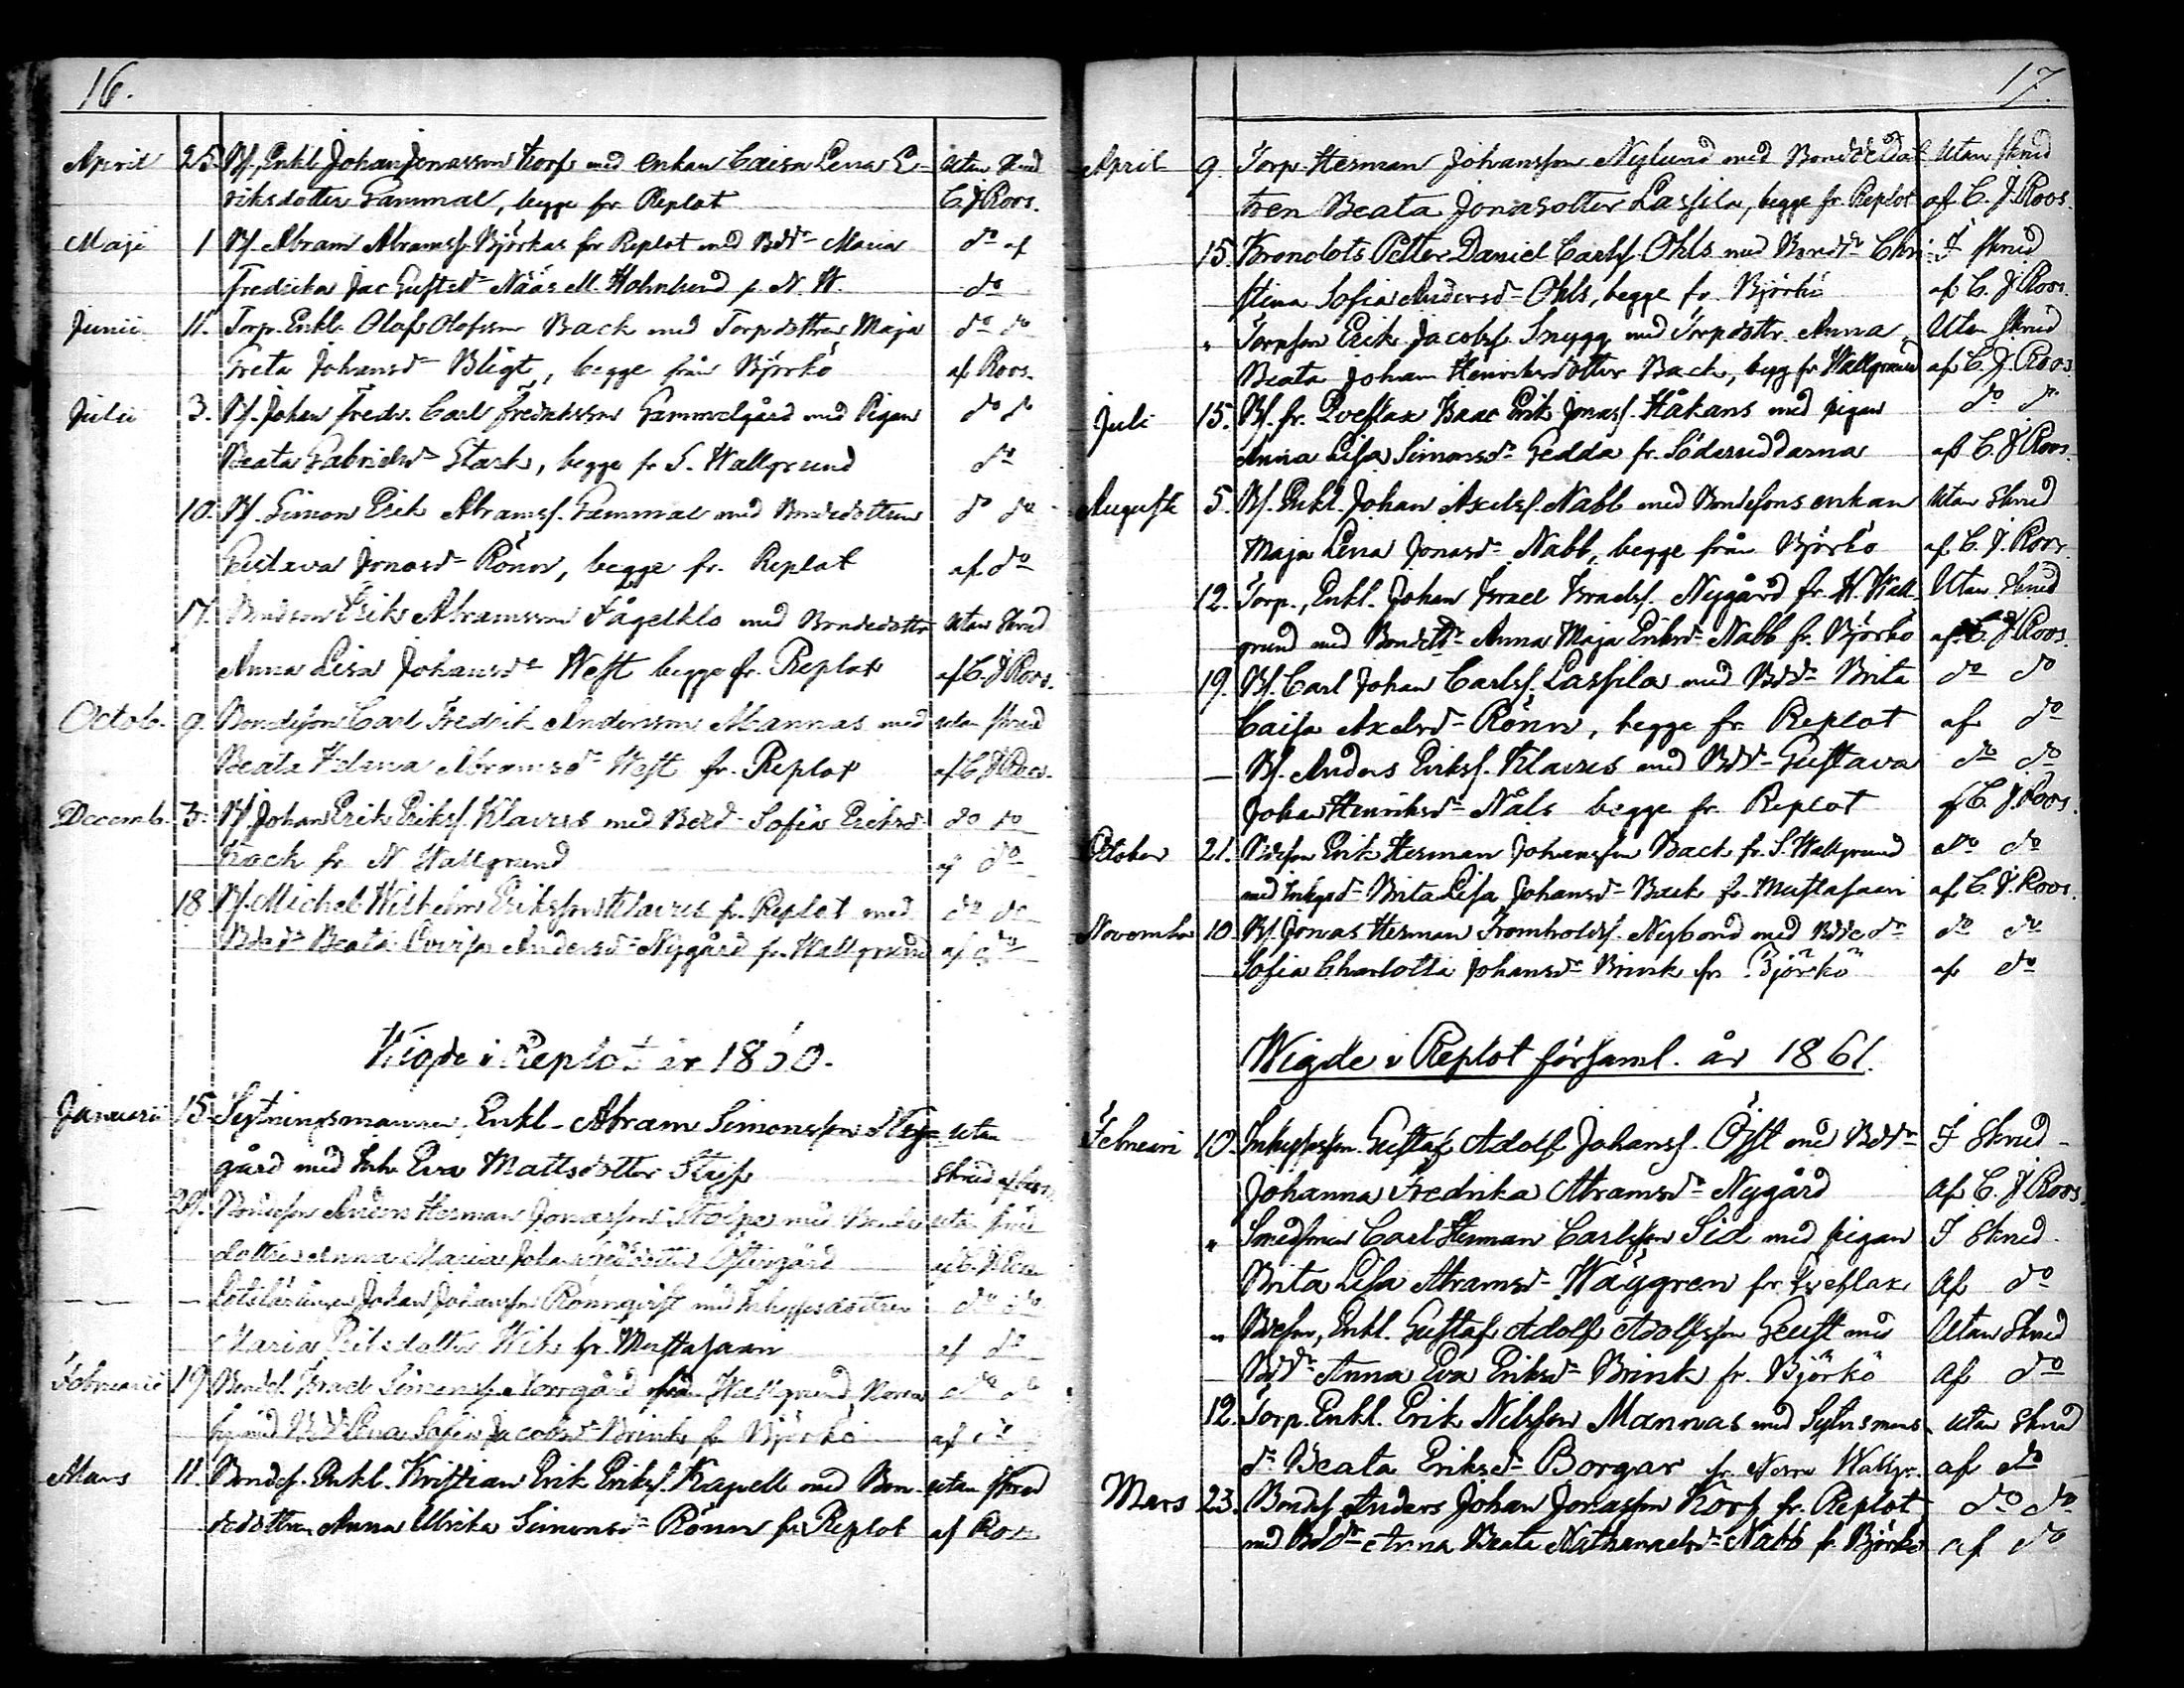 16.
April 25. Bs. Enkl. Johan Jonasson Korp med enkan Caisa Lena E- utan skrud
riksdotter Gammal, begge fr. Replot C. J. Roos.
Maji 1 Bs. Abram Abramss. Björkas fr Replot med Bdr Maria do af
Fredrika Jac Gustsdr Näås M. Holmlund f. N. W. do
Junii 11. Torp. Enkl. Olof Olofsson Back med Torpdottren Maja do do
Greta Johansdr Bligt, begge från Björkö af Roos.
Julii 3. Bs. Johan Fredr. Carl Fredriksson Gammelgård med Pigan do do
Beata Gabrielsdr Stark, begge fr S. Wallgrund do
10. Bs. Simon Erik Abramss. Gammal med Bondedottren do do
Gustava Jonasdr Rönn, begge fr. Replot af do
17. Bondson Erik Abramsson Fågelklo med Bondedottr utan Skrud
Anna Lisa Johansdr West begge fr. Replot af C. J. Roos.
Octob. 9. Bondeson Carl Fredrik Andersson Mannas med utan skrud
Beata Helena Abramsdr West fr. Replot af C. J. Roos.
Decemb. 3. Bs Johan Erik Erikss. Klavus med Bdd Sofia Eriksd. do do
Kack fr N Wallgrund af do
18. Bs. Michel Wilhelm Eriksson Klavus fr. Replot med do do
Bdedr Beata Lovisa Andersdr Nygård fr. Wallgrund af do
Wigde i Replot år 1860.
Januarii 15 Sytningsmannen, Enkl. Abram Simonsson Ny- utan
gård med Enk. Eva Mattsdotter Skrud af
29. Bondeson Anders Herman Jonasson Stolpe med Bonde utan skrud
dottren Anna Maria Östergård
Lotslärlingen Johan Johansson Rönnqvist med Inhysesdottren do do
Maria Eriksdotter Wik fr. Mustasaari af do
Februarii 19 Bondes. Israel Simonss. Norrgård från Wallgrund, Norra do do
by med Lena Sofia Jacobsdr Brink fr Björkö af do
Mars 11. Bondes. Enkl. Kristian Erik Erikss. Kapell med Bon- utan skrud
dedottren Anna Ulrika Simonsdr Rönn fr. Replot af Roos
17.
April 9. Torp. Herman Johansson Nylund med Bondedot- Utan skrud
tren Beata Jonasdotter Lassila, begge fr. Replot af C. J. Roos.
15. Kronolots Petter Daniel Carlss. Ohls med Bondr Chri- I skrud
stina Sofia Andersdr Ohls, begge fr. Björkö af C. J. Roos.
" Torpson Erik Jacobss. Snygg med Torpdottr. Anna Utan skrud
Beata Johan Henriksdotter Back, begg fr Wallgrund af C. J. Roos.
Juli 15. Bs. fr. Qveflax Isaac Erik Jonass. Håkans med pigan do do
Anna Lisa Simonsdr Gedda fr. Söderuddarna af C. J. Roos.
Augusti 5. Bs. Enkl. Johan Axelss. Nabb med Bondesons enkan utan skrud
Maja Lena Jonasdr Nabb, begge från Björkö af C. J. Roos.
12. Torp., Enkl. Johan Israel Israelss. Nygård fr. N. Wall- Utan skrud
grund med Bondedr Anna Maja Eriksdr Nabb fr. Björkö af C. J. Roos.
19. Bs. Carl Johan Carlss. Lassila med Bddr Brita do do
Caisa Axelsdr Rönn, begge fr. Replot af do
— Bs. Anders Erikss. Klavus med Bddr Gustava do do
Johan Henriksdr Nåls begge fr. Replot af C. J. Roos.
October 21. Bdeson Erik Herman Johansson Back fr. S. Wallgrund do do
med Inhysdr Brita Lisa Johansdr Back fr. Mustasaari af C. J. Roos.
November 10. Bs. Jonas Herman Fromholdss. Nybond med Bdedr do do
Sofia Charlotta Johansdr Brink fr. Björkö af do
Wigde i Replot församl. år 1861.
Februari 10. Inhysesson Gustaf Adolf Johanss. Öjst med Bddr I Skrud
Johanna Fredrika Abramsdr Nygård af C. J. Roos
" Smedsonen Carl Herman Carlsson Sid med pigan I Skrud
Brita Lisa Abramsdr Häggren fr. Qveflax af do
" Bdeson, Enkl. Gustaf Adolf Adolfsson Geust med Utan Skrud
Bddr Anna Eva Eriksdr Brink fr. Björkö af do
12. Torp. Enkl. Erik Nilsson Mannas med Sytnsmans utan skrud
dr Beata Eriksdr Borgar fr. Norra Wallgr. af do
Mars 23. Bondes. Anders Johan Jonasson Korp fr. Replot do do
med Bddr Anna Beata Nathanaelsdr Nabb fr. Björkö af do